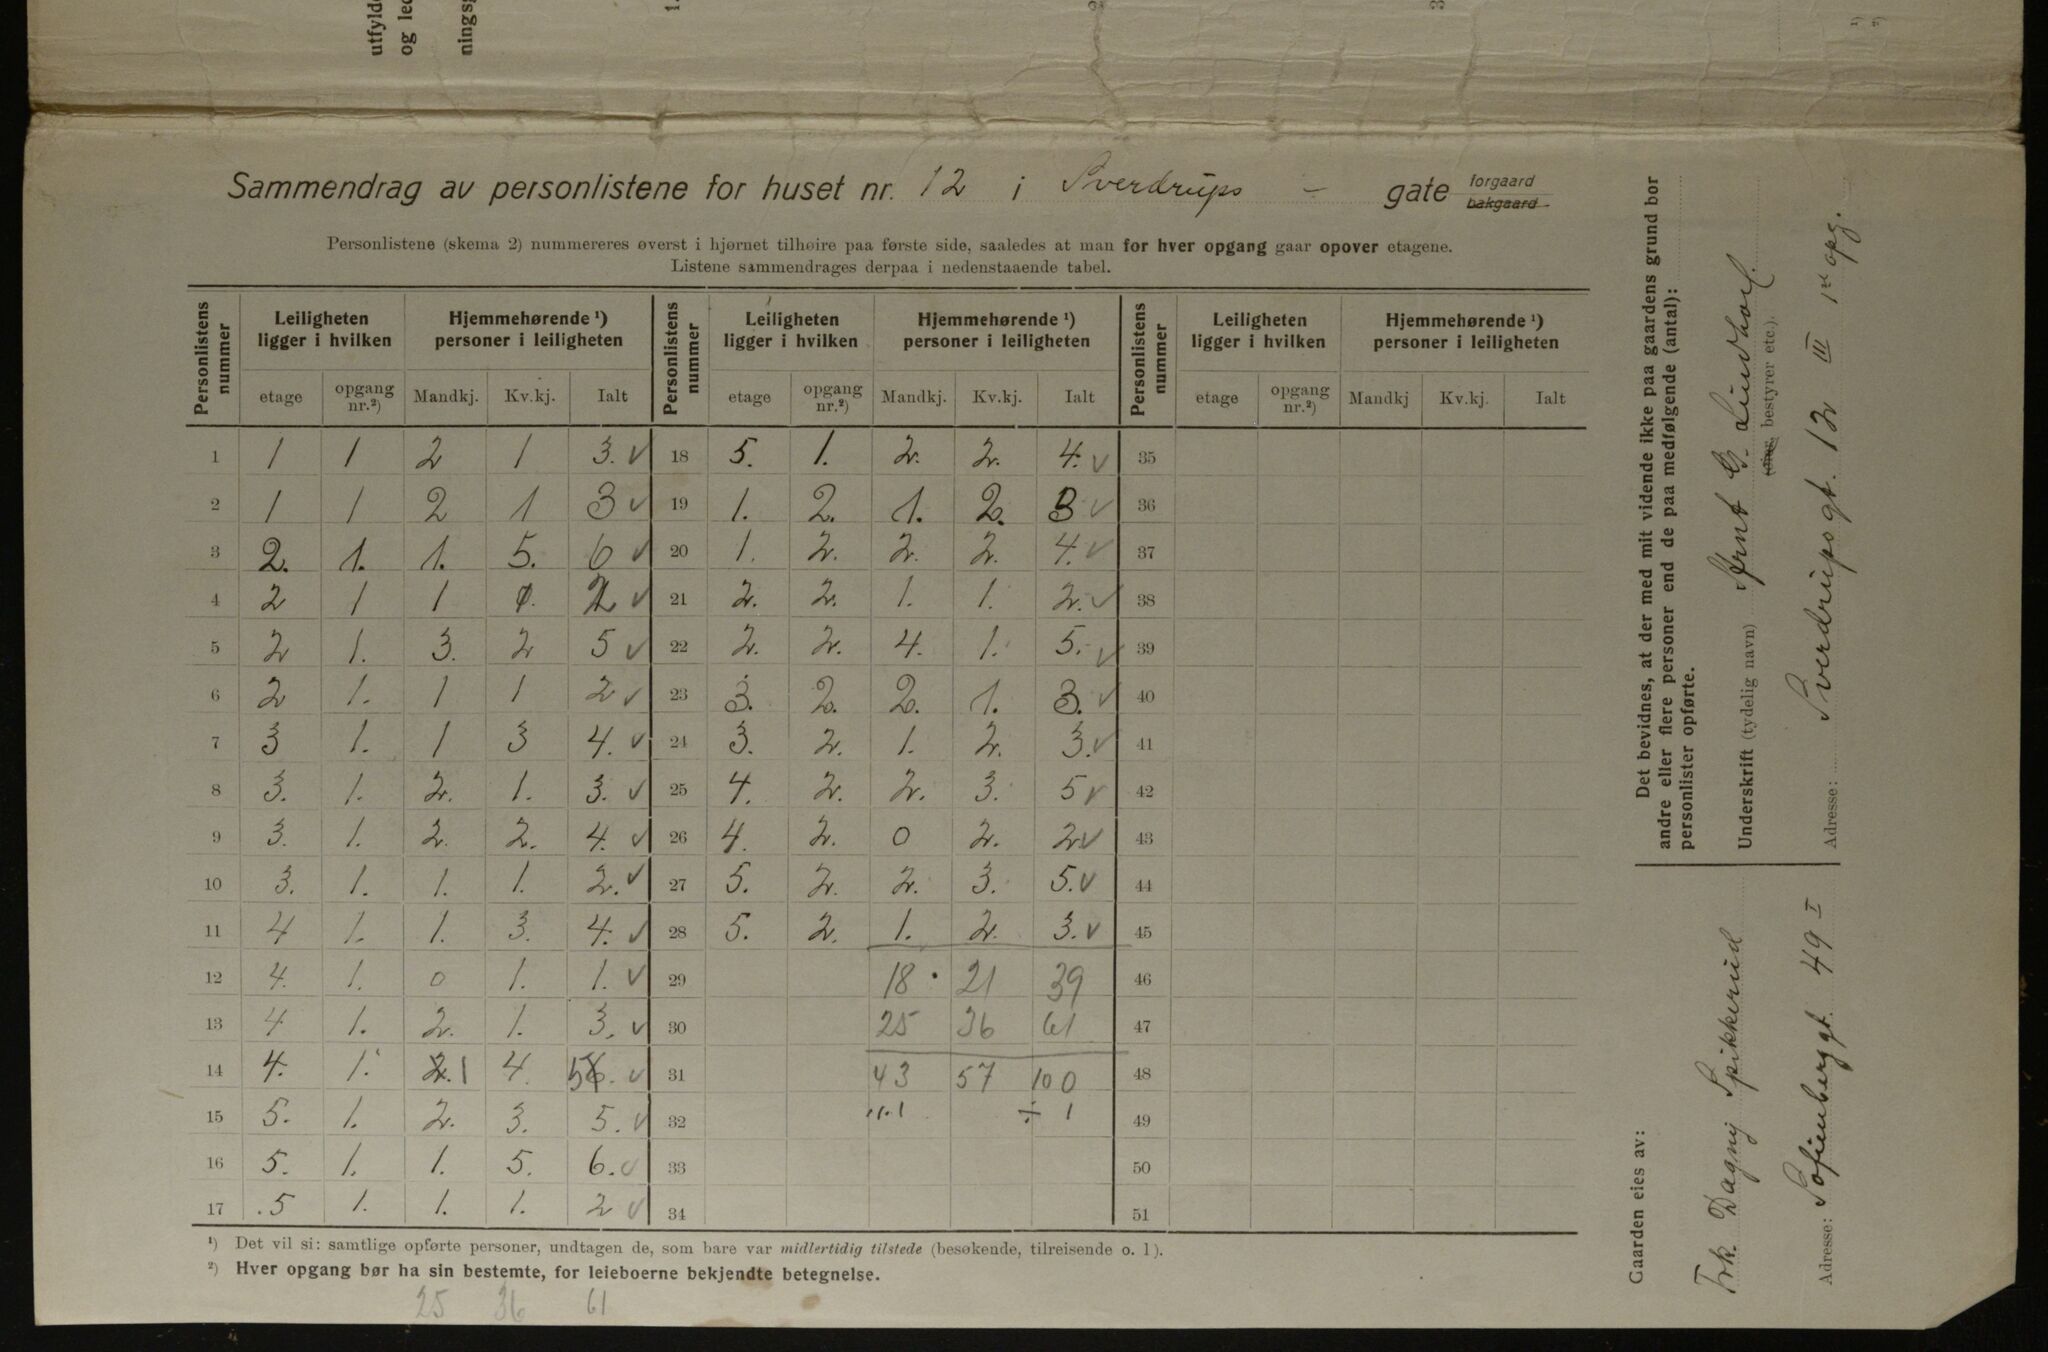 utfylde
og led
ningsg
Sammendrag av personlistene for huset nr. 12 i Sverdrups - gate forgaard bakgaard
Personlistene (skema 2) nummereres øverst i hjørnet tilhøire paa første side, saaledes at man for hver opgang gaar opover etagene.
Listene sammendrages derpaa i nedenstaaende tabel.
Personlistens nummer | Leiligheten ligger i hvilken | Hjemmehørende ¹) personer i leiligheten | Personlistens nummer | Leiligheten ligger i hvilken | Hjemmehørende ¹) personer i leiligheten | Personlistens nummer | Leiligheten ligger i hvilken | Hjemmehørende ¹) personer i leiligheten
etage | opgang nr.²) | Mandkj. | Kv.kj. | Ialt | etage | opgang nr.²) | Mandkj. | Kv.kj. | Ialt | etage | opgang nr.²) | Mandkj | Kv.kj. | Ialt
1 | 1 | 1 | 2 | 1 | 3. ✓ | 18 | 5. | 1. | 2. | 2. | 4. ✓ | 35
2 | 1 | 1 | 2 | 1 | 3 ✓ | 19 | 1. | 2. | 1. | 2. | 3 ✓ | 36
3 | 2. | 1. | 1. | 5. | 6 ✓ | 20 | 1. | 2. | 2. | 2. | 4. ✓ | 37
4 | 2 | 1 | 1 | | ✓ | 21 | 2. | 2. | 1. | 1. | 2. ✓ | 38
5 | 2 | 1. | 3. | 2 | 5 ✓ | 22 | 2. | 2. | 4. | 1. | 5. ✓ | 39
6 | 2 | 1. | 1 | 1 | 2 ✓ | 23 | 3. | 2. | 2. | 1. | 3. ✓ | 40
7 | 3 | 1. | 1 | 3 | 4. ✓ | 24 | 3. | 2. | 1. | 2. | 3. ✓ | 41
8 | 3. | 1. | 2. | 1. | 3. ✓ | 25 | 4. | 2. | 2. | 3. | 5 ✓ | 42
9 | 3. | 1. | 2. | 2. | 4. ✓ | 26 | 4. | 2. | 0 | 2. | 2 ✓ | 43
10 | 3. | 1. | 1. | 1. | 2. ✓ | 27 | 5. | 2. | 2. | 3. | 5. ✓ | 44
11 | 4 | 1. | 1. | 3. | 4. ✓ | 28 | 5. | 2. | 1. | 2. | 3. ✓ | 45
12 | 4. | 1. | 0 | 1. | 1. ✓ | 29 | | | 18 | 21 | 39 | 46
13 | 4 | 1. | 2. | 1. | 3. ✓ | 30 | | | 25 | 36 | 61 | 47
14 | 4. | 1. | 2. 1 | 4. | 5 6. ✓ | 31 | | | 43 | 57 | 100 | 48
15 | 5. | 1. | 2. | 3. | 5. ✓ | 32 | | | ÷ 1 | | ÷ 1 | 49
16 | 5. | 1. | 1. | 5. | 6. ✓ | 33 | | | | | | 50
17 | 5 | 1. | 1. | 1. | 2 ✓ | 34 | | | | | | 51
¹) Det vil si: samtlige opførte personer, undtagen de, som bare var midlertidig tilstede (besøkende, tilreisende o. l).
²) Hver opgang bør ha sin bestemte, for leieboerne bekjendte betegnelse.
25 36 61
Det bevidnes, at der med mit vidende ikke paa gaardens grund bor
andre eller flere personer end de paa medfølgende (antal):
personlister opførte.
Underskrift (tydelig navn) Arnt G. Lindholl.
bestyrer etc.).
Adresse: Sverdrupsgt. 12 III 1ste opg.
Gaarden eies av:
Frk. Dagny Spikkerud
Adresse: Sofienberggt. 49 I